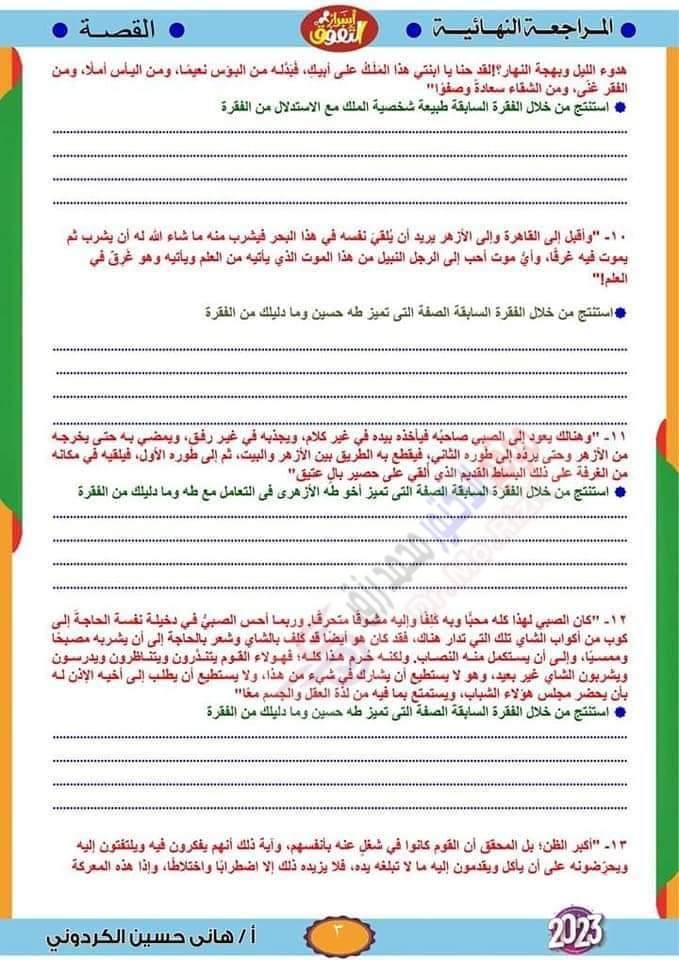 المراجعة النهائية
أسرار التفوق
القصة
هدوء الليل وبهجة النهار؟!لقد حنا يا ابنتي هذا المَلَكُ على أبيكِ، فَبَدَّلـه مـن البـؤس نعيمًـا، ومـن اليـأس أمـلًا، ومـن
الفقر غنًى، ومن الشقاء سعادةً وصفوًا"
استنتج من خلال الفقرة السابقة طبيعة شخصية الملك مع الاستدلال من الفقرة
١٠- "وأقبل إلى القاهرة وإلى الأزهر يريد أن يُلقيَ نفسه في هذا البحر فيشرب منه ما شاء الله له أن يشرب ثم
يموت فيه غرقًا، وأيُّ موت أحب إلى الرجل النبيل من هذا الموت الذي يأتيه من العلم ويأتيه وهو غَرِقٌ في
العلم!"
استنتج من خلال الفقرة السابقة الصفة التى تميز طه حسين وما دليلك من الفقرة
١١- "وهنالك يعود إلى الصبي صاحبُه فيأخذه بيده في غير كلام، ويجذبه في غيـر رفـق، ويمضـي بـه حتـى يخرجـه
من الأزهر وحتى يردَّه إلى طوره الثاني، فيقطع به الطريق بين الأزهر والبيت، ثم إلى طوره الأول، فيلقيه في مكانه
من الغرفة على ذلك البساط القديم الذي ألقي على حصير بالٍ عتيق"
استنتج من خلال الفقرة السابقة الصفة التى تميز أخو طه الأزهرى فى التعامل مع طه وما دليلك من الفقرة
١٢- "كان الصبي لهذا كله محبًّا وبه كَلِفًا وإليه مشوقًا متحرقًا. وربما أحس الصبيُّ في دخيلة نفسة الحاجةَ إلى
كوب من أكواب الشاي تلك التي تدار هناك، فقد كان هو أيضًا قد كَلِف بالشاي وشعر بالحاجة إلى أن يشربه مصبحًا
وممسـيًا، وإلـى أن يسـتكمل منـه النصـاب. ولكنـه حُرِم هذا كلـه؛ فهـؤلاء القـوم يتندَّرون ويتناظرون ويدرسـون
ويشربون الشاي غير بعيد، وهو لا يستطيع أن يشارك في شيء من هذا، ولا يستطيع أن يطلب إلى أخيه الإذن له
بأن يحضر مجلس هؤلاء الشباب، ويستمتع بما فيه من لذة العقل والجسم معًا"
استنتج من خلال الفقرة السابقة الصفة التى تميز طه حسين وما دليلك من الفقرة
١٣- "أكبر الظن؛ بل المحقق أن القوم كانوا في شغل عنه بأنفسهم، وآية ذلك أنهم يفكرون فيه ويلتفتون إليه
ويحرِّضونه على أن يأكل ويقدمون إليه ما لا تبلغه يده، فلا يزيده ذلك إلا اضطرابًا واختلاطًا، وإذا هذه المعركة
2023
٣
أ / هانى حسين الكردوني